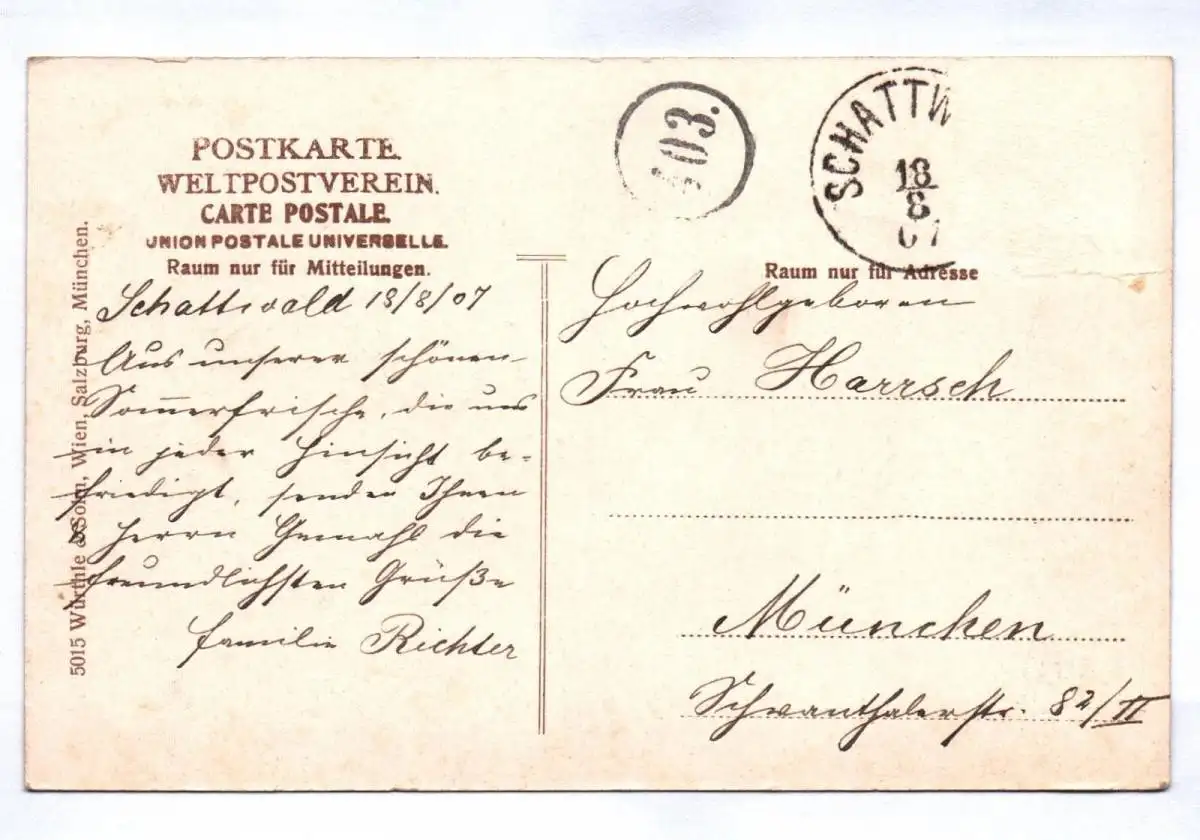 POSTKARTE.
WELTPOSTVEREIN.
CARTE POSTALE.
UNION POSTALE UNIVERSELLE.
Raum nur für Mitteilungen.
Schattwald 18/8/07
Aus unserer schönen
Sommerfrische, die uns
in jeder Hinsicht be-
friedigt, senden Ihnen
& Herrn Gemahl die
freundlichsten Grüße
Familie Richter
5015 Würthle & Sohn, Wien, Salzburg, München.
03.
SCHATTW
18
8
07
Raum nur für Adresse
Hochwohlgeboren
Frau Harrsch
München
Schwanthalerstr. 82/II